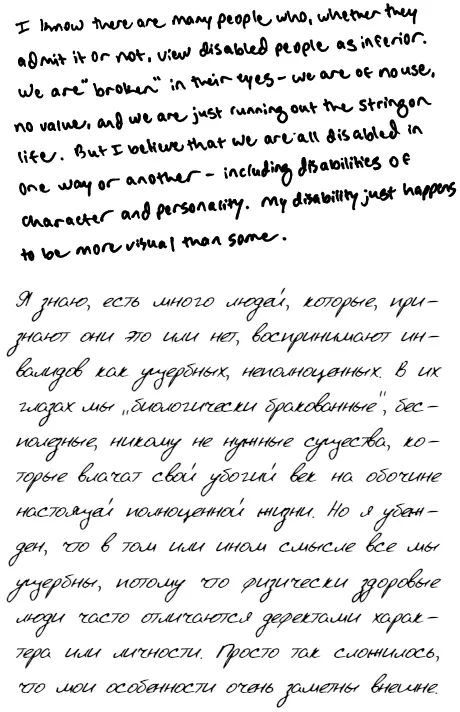 I know there are many people who, whether they
admit it or not, view disabled people as inferior.
We are "broken" in their eyes - we are of no use,
no value, and we are just running out the string on
life. But I believe that we are all disabled in
one way or another - including disabilities of
character and personality. My disability just happens
to be more visual than some.
Я знаю, есть много людей, которые, при-
знают они это или нет, воспринимают ин-
валидов как ущербных, неполноценных. В их
глазах мы „биологически бракованные", бес-
полезные, никому не нужные существа, ко-
торые влачат свой убогий век на обочине
настоящей полноценной жизни. Но я убеж-
ден, что в том или ином смысле все мы
ущербны, потому что физически здоровые
люди часто отличаются дефектами харак-
тера или личности. Просто так сложилось,
что мои особенности очень заметны внешне.